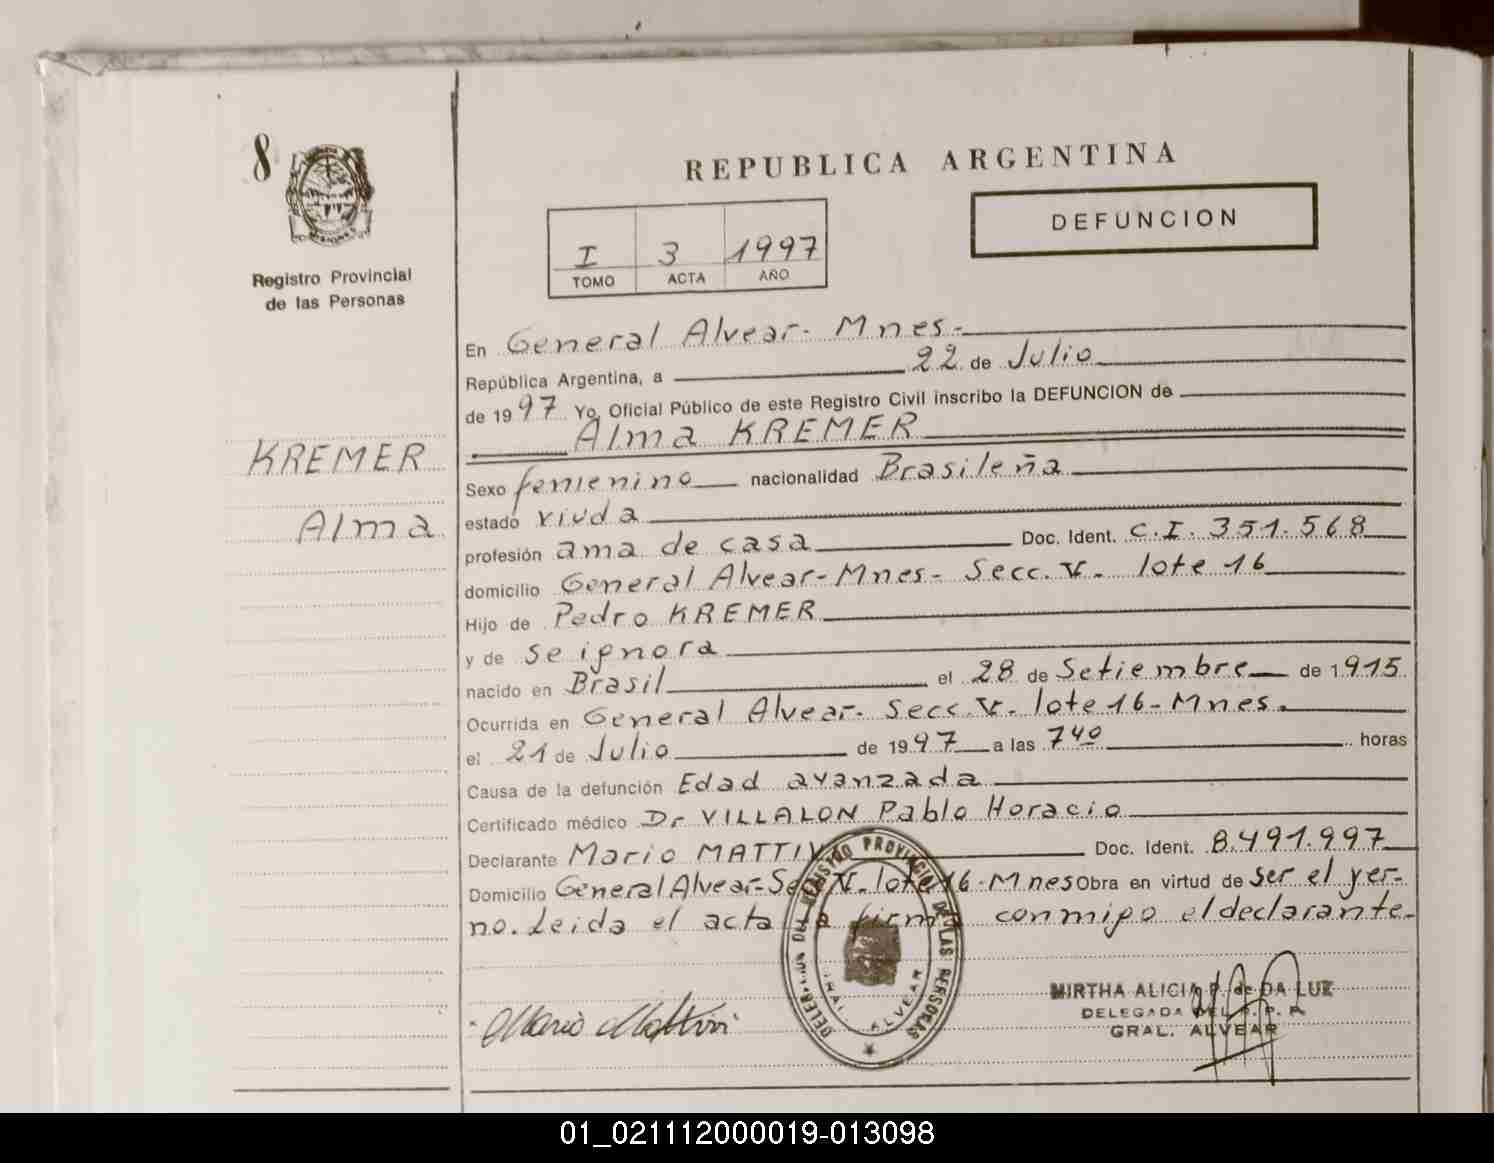 8
REPUBLICA ARGENTINA
DEFUNCION
I 3 1997
TOMO ACTA AÑO
Registro Provincial
de las Personas
En General Alvear - Mnes -
República Argentina, a 22 de Julio
de 1997 Yo, Oficial Público de este Registro Civil inscribo la DEFUNCION de
Alma KREMER
KREMER
Alma
Sexo femenino nacionalidad Brasileña
estado viuda
profesión ama de casa Doc. Ident. C.I. 351.568
domicilio General Alvear - Mnes - Secc. V. lote 16
Hijo de Pedro KREMER
y de se ignora
nacido en Brasil el 28 de Setiembre de 1915
Ocurrida en General Alvear - Secc. V. lote 16 - Mnes.
el 21 de Julio de 1997 a las 7 40 horas
Causa de la defunción Edad avanzada
Certificado médico Dr VILLALON Pablo Horacio
Declarante Mario MATTIV Doc. Ident. 8.491.997
Domicilio General Alvear - Secc V. lote 16 - Mnes Obra en virtud de ser el yer-
no. Leida el acta la firma conmigo el declarante.
DELEGACION DEL REGISTRO PROVINCIAL DE LAS PERSONAS
GRAL. ALVEAR
MIRTHA ALICIA P. de DA LUZ
DELEGADA DEL R. P. P.
GRAL. ALVEAR
01_021112000019-013098